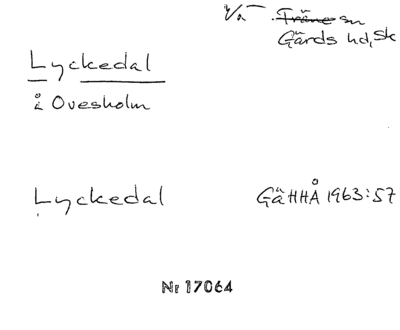 V:a Träne sn
Gärds hd, Sk
Lyckedal
å Ovesholm
Lyckedal
GäHHÅ 1963:57
Nr 17064